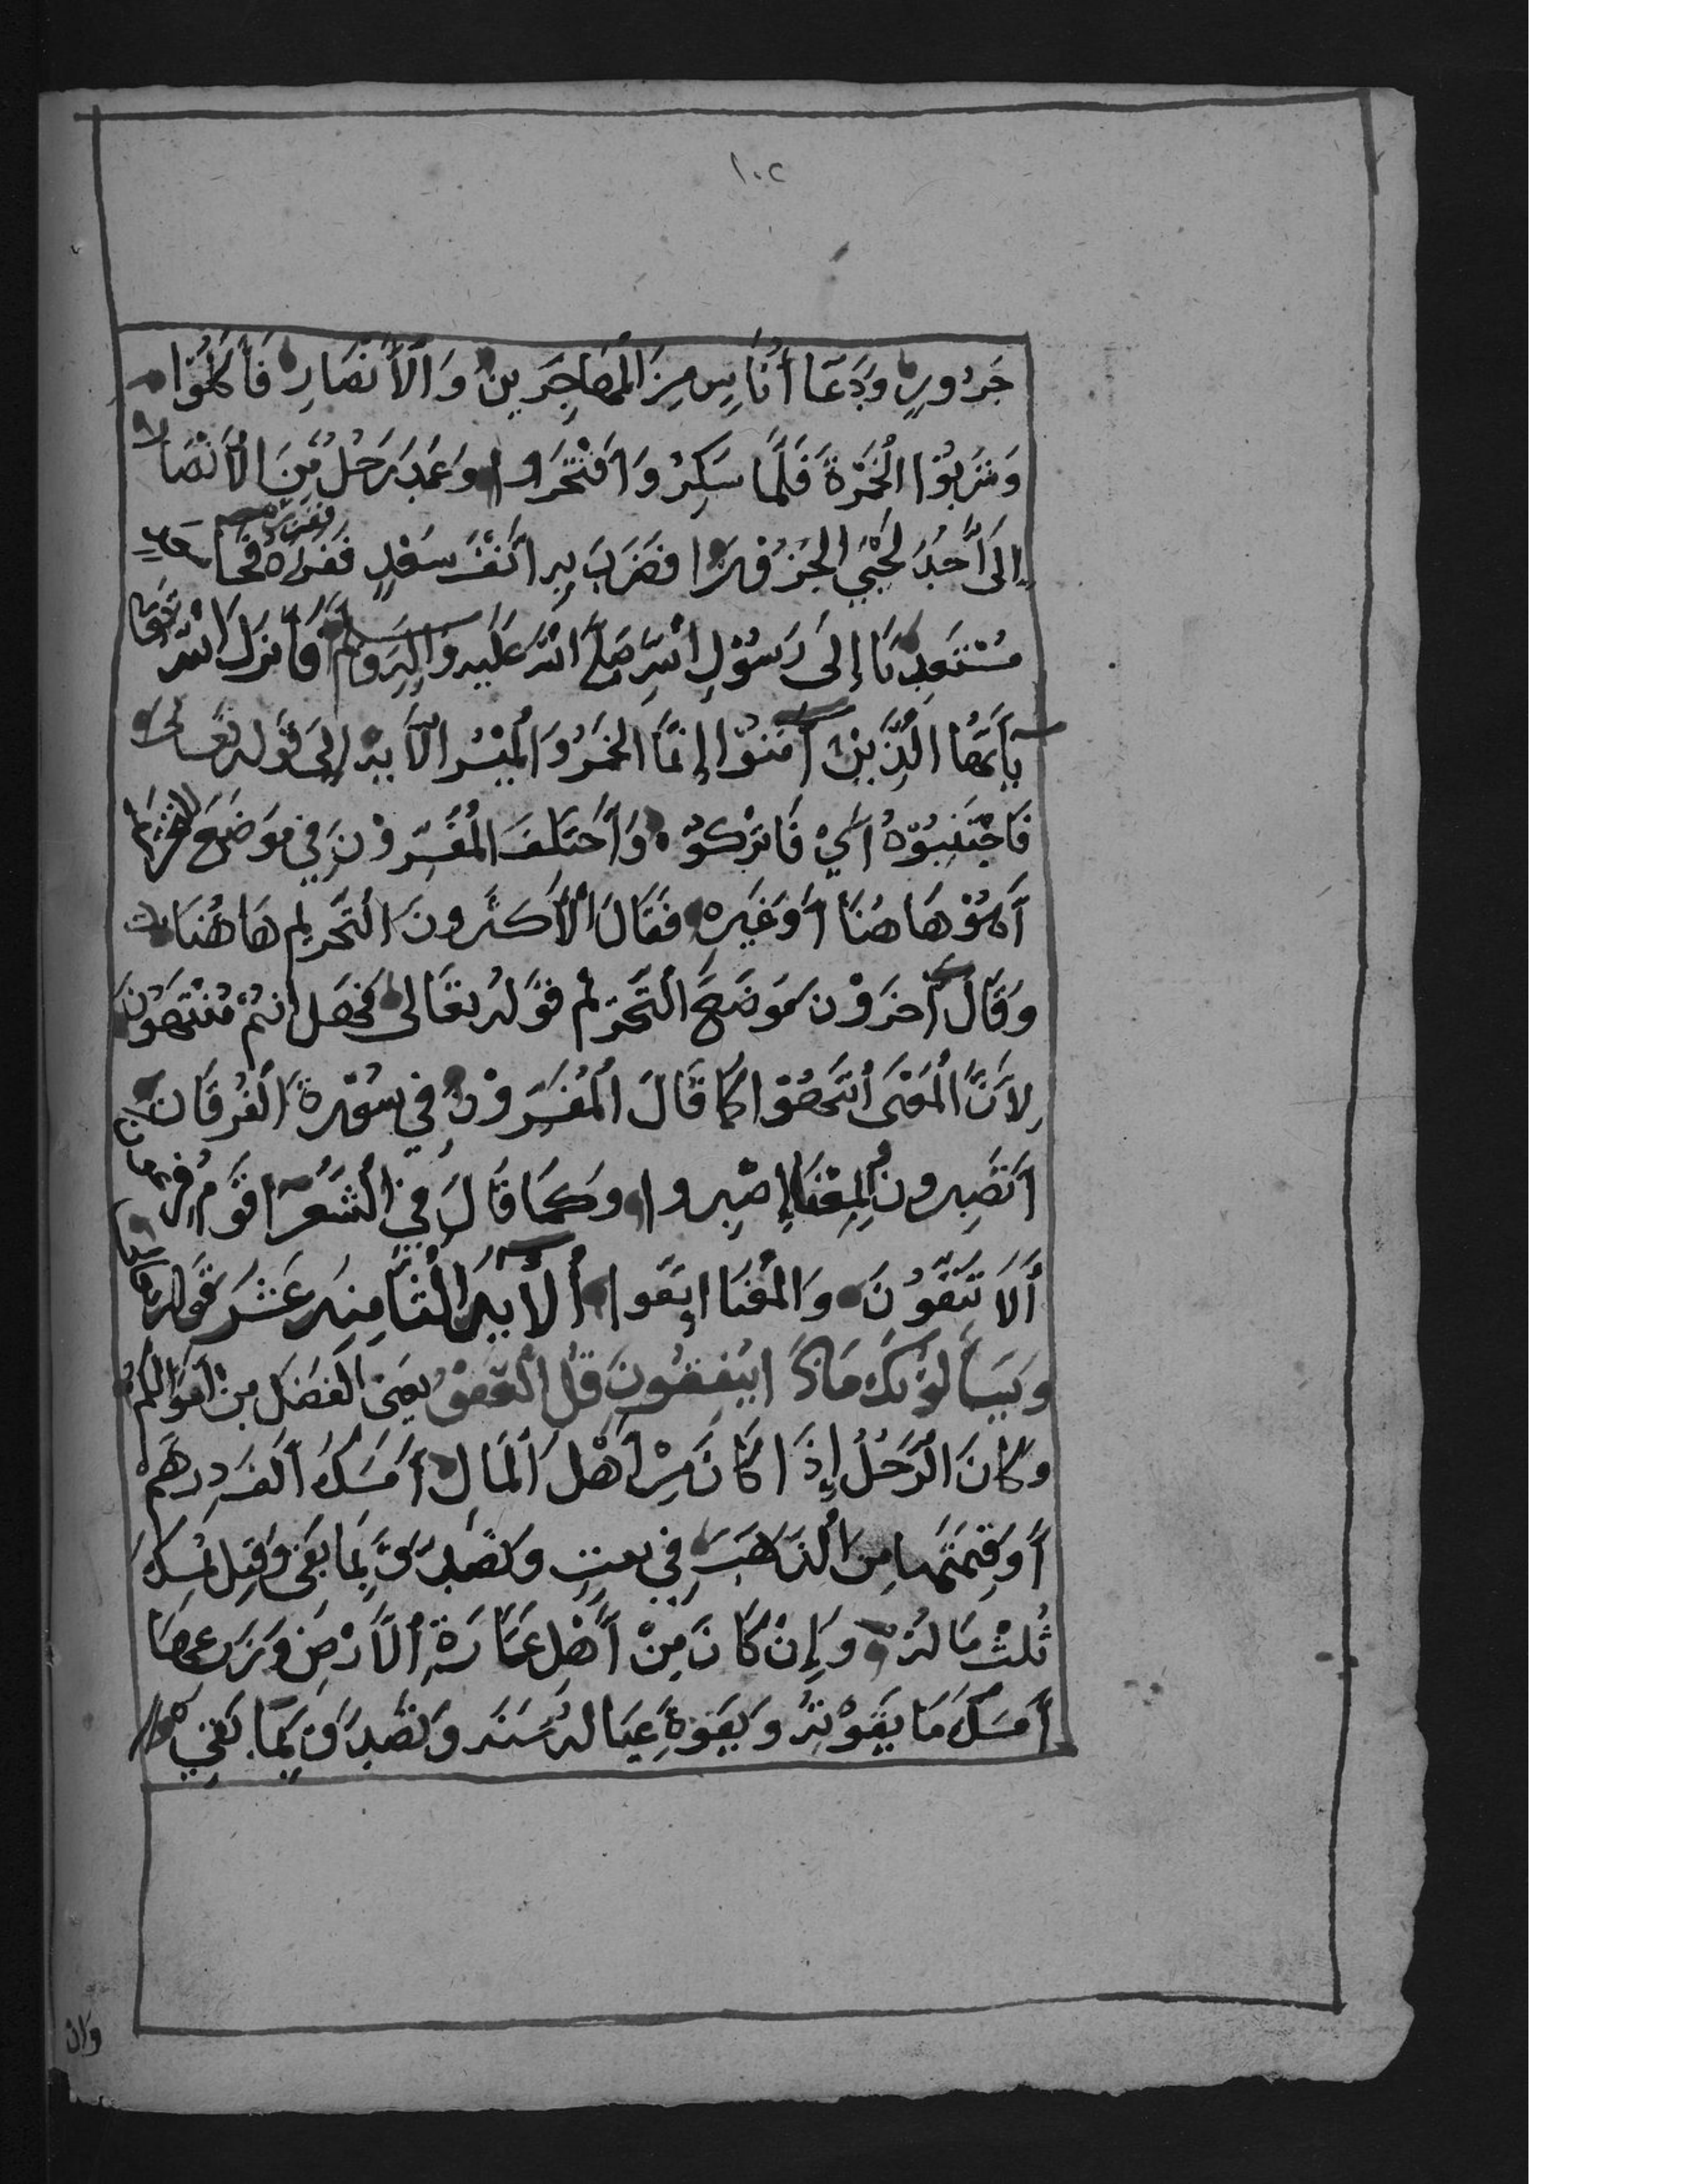 ١٠٢
جَزُورٍ وَدَعَا أُنَاسٍ مِنَ الْمُهَاجِرِينَ وَالْأَنْصَارِ فَأَكَلُوا
وَشَرِبُوا الْخَمْرَةَ فَلَمَّا سَكِرُ وَافْتَخَرُوا وَعَمَدَ رَجُلٌ مِنَ الْأَنْصَار
إِلَى أَحَدِ لَحْيَي الْجَزُوْرِ فَضَرَبَ بِهِ أَنْفَ سَعْدٍ ففزره فَجَا
مُسْتَعِدِيًا إِلَى رَسُوْلِ اللَّهِ صَلَّى اللَّهُ عَلَيْهِ وَآلِهِ وَسلم فَأَنْزَلَ اللَّه تعالى
يَأَيُّهَا الَّذِيْنَ آمَنُوْا إِنَّمَا الْخَمْرُ وَالْمَيْسِرُ الْآيَة إِلَى قَوْلِهِ تَعَالَى
فَاجْتَنِبُوْهُ أَيْ فَاتْرُكُوْهُ وَاَخْتَلَفَ الْمُفَسِّرُوْنَ فِي مَوْضِعِ التحريم
أَهُوْ هَاهُنَا أَوْ غَيْرِهِ فَقَالَ الْأَكْثَرُونَ التَّحْرِيمِ هَاهُنَا
وَقَالَ آخَرُوْنَ مَوْضِعَ التَّحْرِيْم قَوْلِهُ تَعَالَى فَهَلْ أَنْتُمْ مُنْتَهُوْنَ
لِأَنَّ الْمَعْنَى انْتَهُوْا كَمَا قَالَ الْمُفَسِّرُوْنَ فِي سُوْرَةِ الْفُرْقَانِ
اَتَصْبِرُونَ الْمَعْنَا إِصْبِرُوا وَكَمَا قَالَ فِي الشُّعَرَآ قَوْمُ فِرعون
أَلَا تَتَّقُوْنَ وَالْمَعْنَا اِتَّقُوا الْآيَةُ الثَّامِنَةَ عَشَرَ قَوْلِهِ تعالى
وَيَسْأَلُوْنَكَ مَاذَا يُنْفِقُوْنَ قُلِ الْعَفْوَ يَعْنَى الْفَضْلَ مِنْ أَمْوَالِكُمْ
وَكَانَ الرَّجُلُ إِذَا كَانَ مِنْ أَهْلِ الْمَالِ أَمْسَكَ أَلْفَ دِرْهَمْ
أَوْ قِيْمَتَهَا مِنَ الذَّهَبَ فِي وَتَصَدَّقَ بِمَا بَقِيَ وَقِيْلَ يُمْسِكُ
ثُلْثُ مَالِهِ وَإِنْ كَانَ مِنْ أَهْلِ عَمَارَةِ الْأَرْضِ وَزَرْعِهَا
أَمْسَكَ مَا يَقُوْتُهُ وَيَقُوْةُ عِيَالَهُ سَنَه وَتَصَدَّقَ بِمَا بَقِيَ
وَان